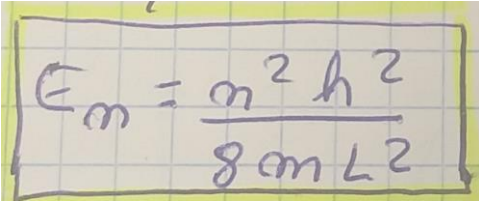 Eₙ = n² h² / 8 m L²